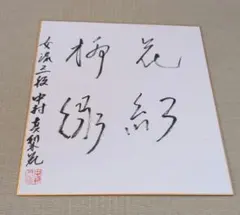 花紅
柳緑
女流三段 中村真梨花